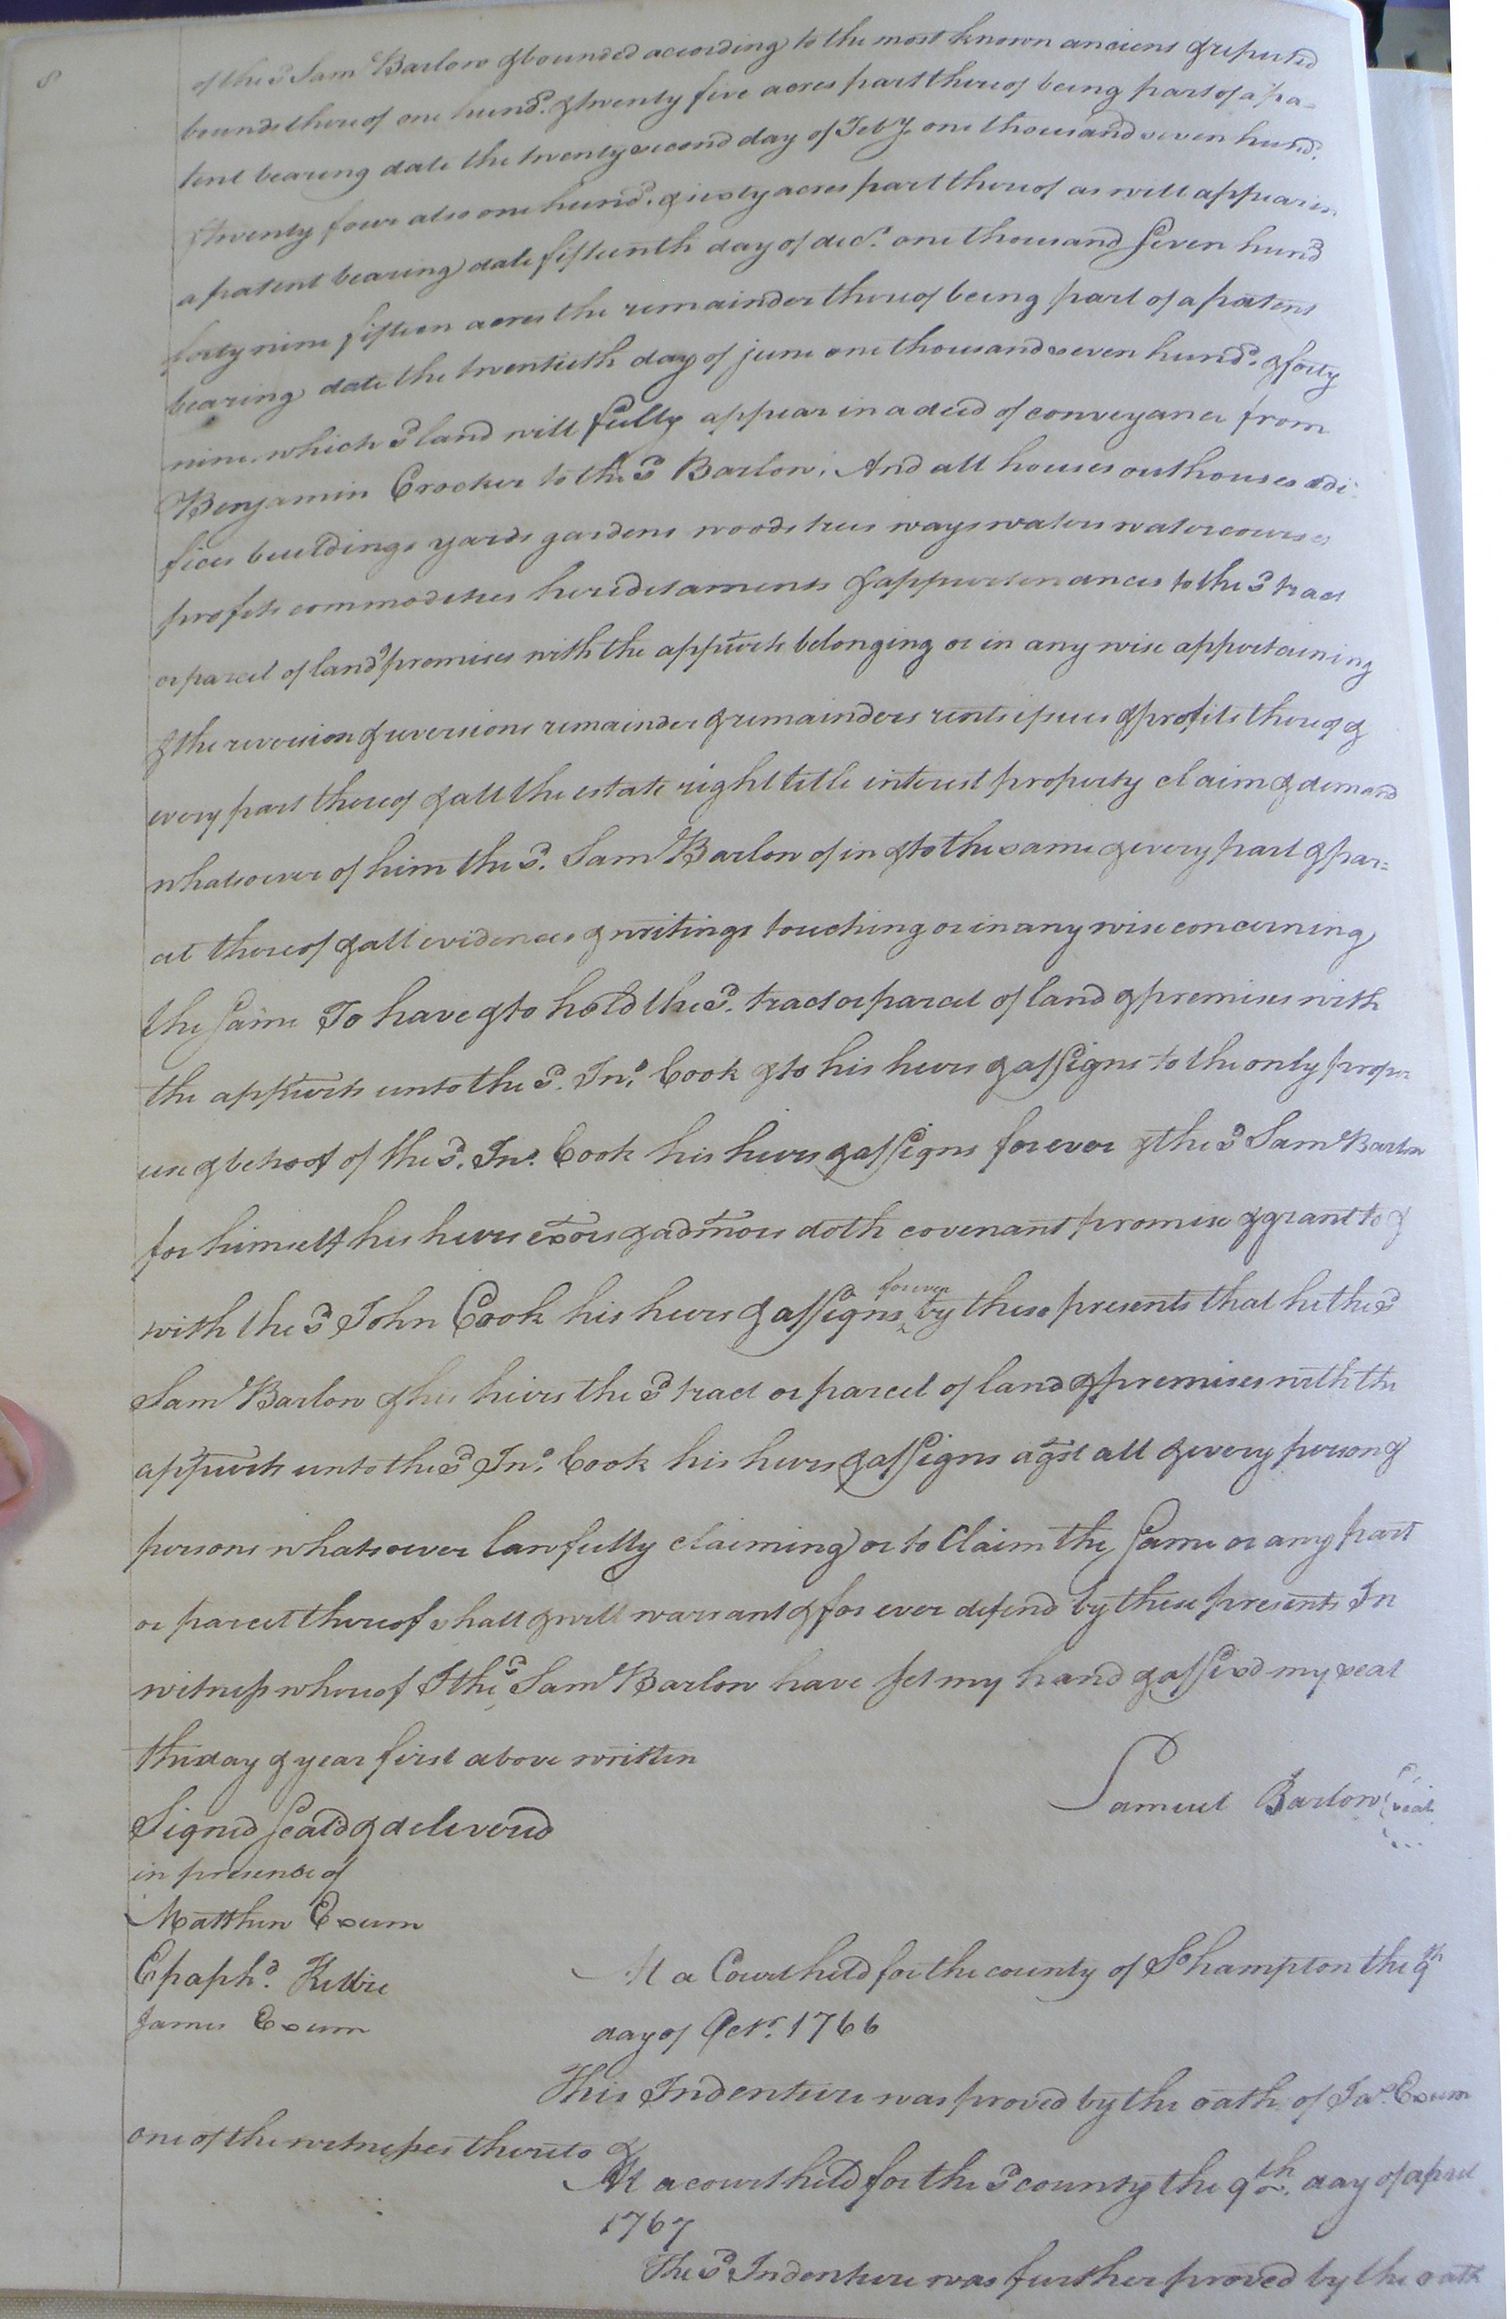 8
of the sd. Sam Barlow & bounded according to the most known anciens & reputed
bounds thereof one hundd. & twenty five acres part thereof being part of a pa-
tent bearing date the twenty second day of Feby one thousand seven hundd.
& twenty four also one hundd. & sixty acres part thereof as will appear in
a patent bearing date fifteenth day of decr. one thousand Seven hund
forty nine fifteen acres the remainder thereof being part of a patent
bearing date the twentieth day of june one thousand seven hundd. & forty
nine which sd land will fully appear in a deed of conveyance from
Benjamin Crocker to the sd Barlow, And all houses outhouses edi-
fices buildings yards gardens woods trees ways waters watercourses
profits commodities heredetaments & appurtenances to the sd tract
or parcel of land & premises with the appurts belonging or in any wise appertaining
& the reversion & reversions remainder & remainders rents issues & profits thereof &
every part thereof & all the estate right title interest property claim & demand
whatsoever of him the sd. Sam Barlow of in & to the same & every part & par=
cel thereof & all evidences & writings touching or in any wise concerning
the Same To have & to hold the sd. tract or parcel of land & premises with
the appurts unto the sd. Jno. Cook & to his heirs & assigns to the only proper
use & behoof of the sd. Jno. Cook his heirs & assigns for ever & the sd Sam Barlow
for himself his heirs exors & admors doth covenant promise & grant to &
with the sd John Cook his heirs & assigns forever by these presents that he the sd
Sam Barlow & his heirs the sd tract or parcel of land & premises with the
appurts unto the sd Jno. Cook his heirs & assigns agst all & every person &
persons whatsoever lawfully claiming or to Claim the Same or any part
or parcel thereof shall & will warrant & for ever defend by these presents In
witness whereof I the sd Sam Barlow have Set my hand & assixd my seal
the day & year first above written
Samuel Barlow seal
Signed Seald & deliverd
in presence of
Matthew Exum
Epaphd.
James Exum
At a Court held for the county of So hampton the 9th
day of Octr. 1766
This Indenture was proved by the oath of Jas. Exum
one of the witnesses thereto &
At a court held for the sd county the 9th. day of april
1767
The sd Indenture was further proved by the oath